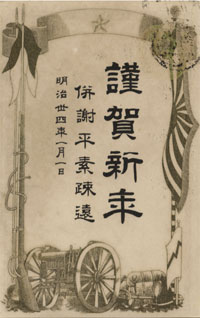 謹賀新年
併謝平素疎遠
明治卅四年一月一日